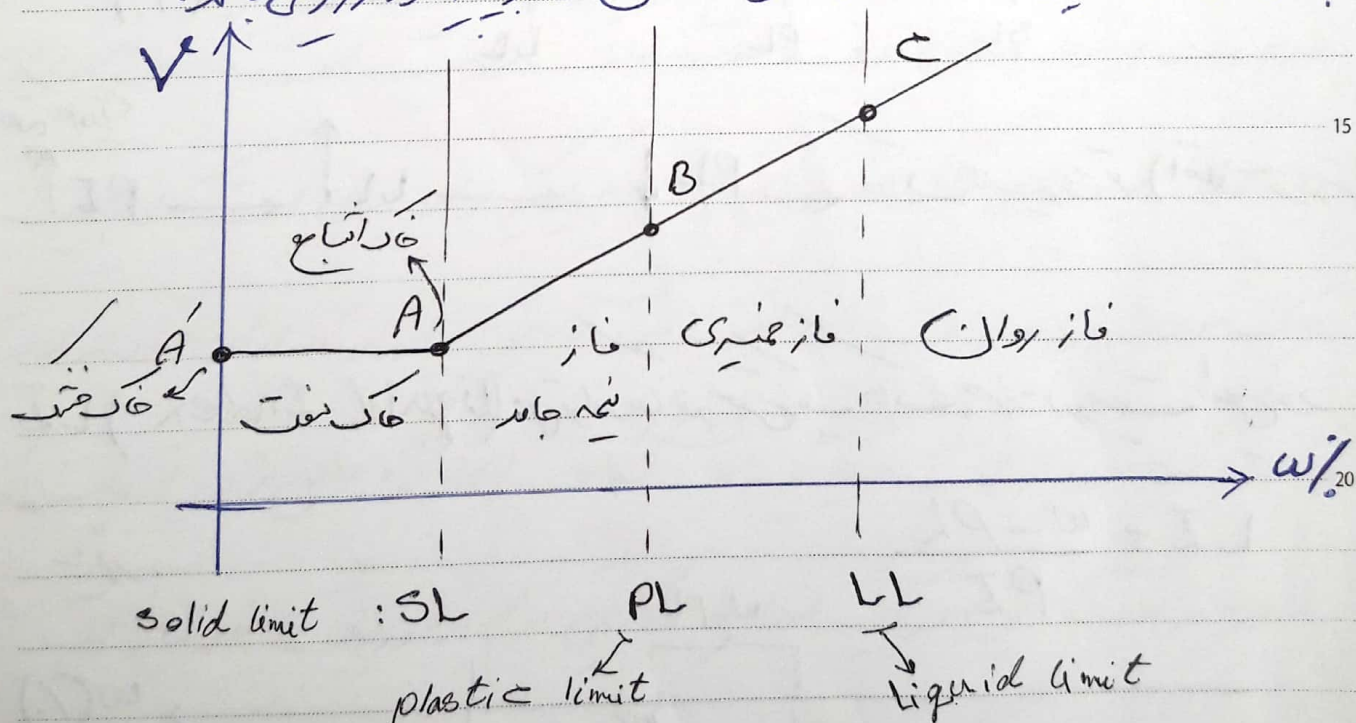 V
C
15
B
خاک اشباع
A
A'
فاز فاز خمیری فاز روان
خاک خشک خاک سفت نیمه جامد
w%
20
solid limit : SL PL LL
plastic limit liquid limit